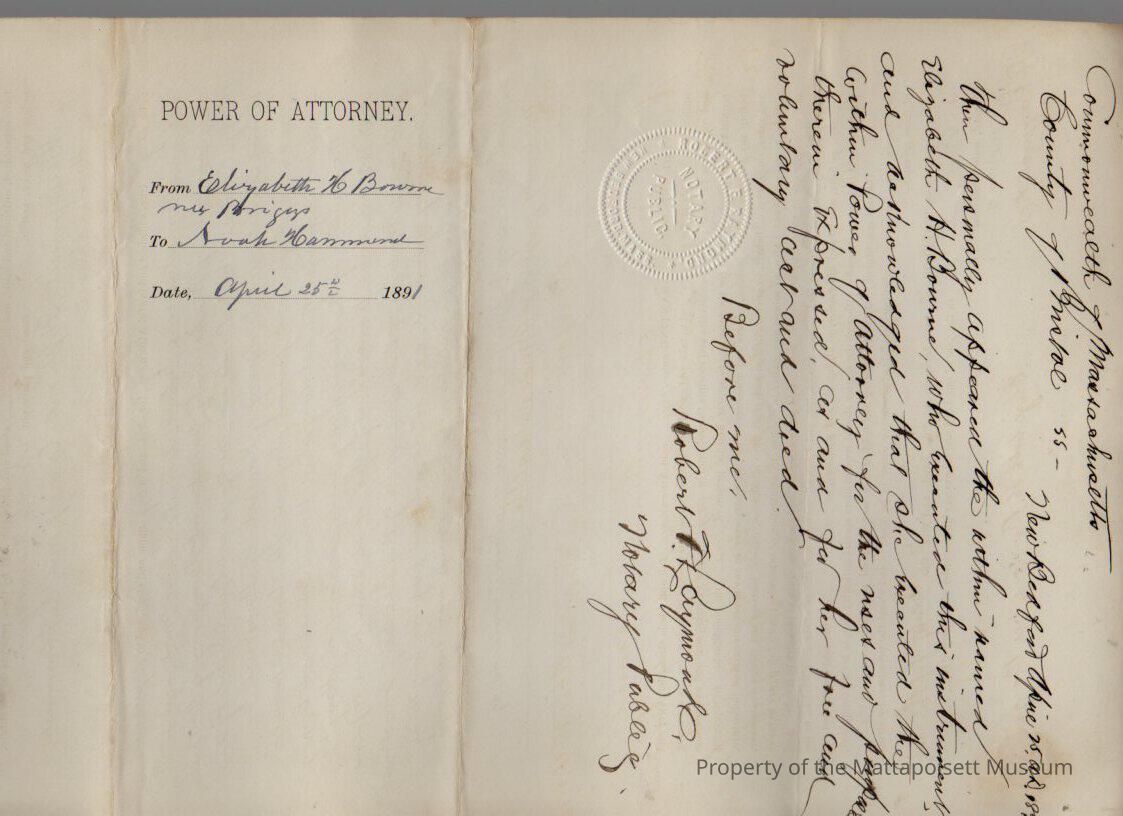 POWER OF ATTORNEY.
From Elizabeth H Bourne
nee Briggs
To Noah Hammond
Date, April 25th 1891
ROBERT
NOTARY
PUBLIC
Commonwealth of Massachusetts
County of Bristol ss - New Bedford April 25, a.d.
Then personally appeared the within named
Elizabeth H. Bourne, who executed this instrument
and acknowledged that she executed the
within Power of Attorney for the uses and
therein expressed, as and for her free and
voluntary act and deed.
Before me,
Robert
Notary Public
Property of the Mattapoisett Museum